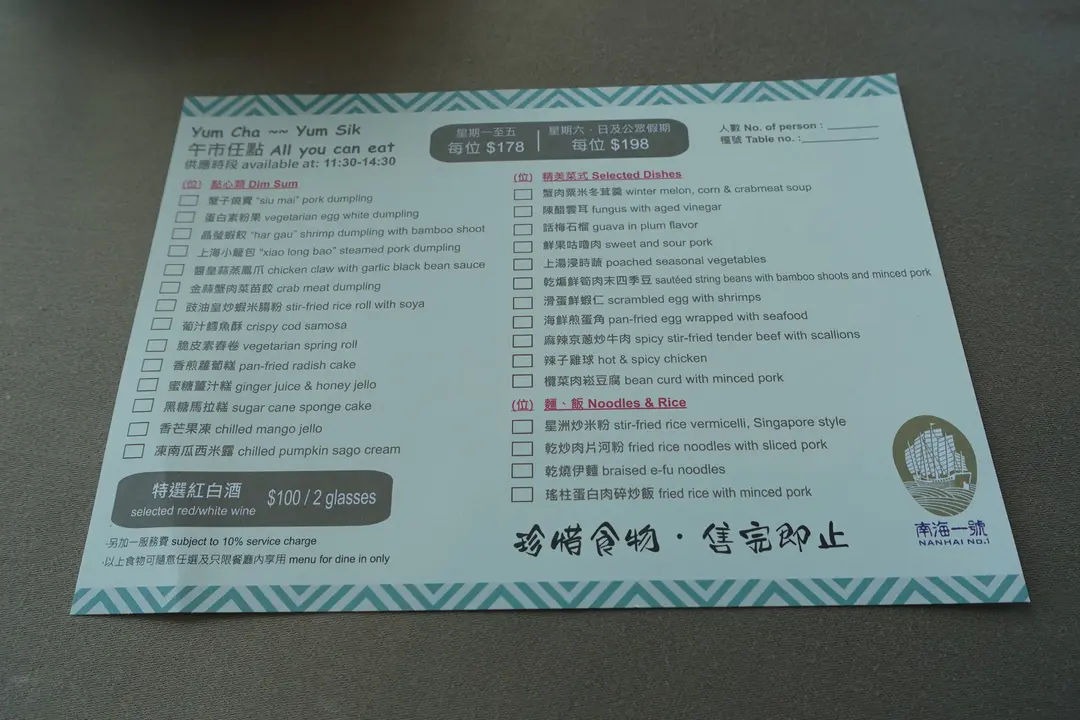 Yum Cha ~~ Yum Sik
午市任點 All you can eat
供應時段 available at: 11:30-14:30
星期一至五
每位 $178
星期六、日及公眾假期
每位 $198
人數 No. of person : ________
檯號 Table no. :____________
(位) 點心類 Dim Sum
蟹子燒賣 "siu mai" pork dumpling
蛋白素粉果 vegetarian egg white dumpling
晶瑩蝦餃 "har gau" shrimp dumpling with bamboo shoot
上海小籠包 "xiao long bao" steamed pork dumpling
醬皇蒜蒸鳳爪 chicken claw with garlic black bean sauce
金蒜蟹肉菜苗餃 crab meat dumpling
豉油皇炒蝦米腸粉 stir-fried rice roll with soya
葡汁鱈魚酥 crispy cod samosa
脆皮素春卷 vegetarian spring roll
香煎蘿蔔糕 pan-fried radish cake
蜜糖薑汁糕 ginger juice & honey jello
黑糖馬拉糕 sugar cane sponge cake
香芒果凍 chilled mango jello
凍南瓜西米露 chilled pumpkin sago cream
特選紅白酒
selected red/white wine
$100 / 2 glasses
·另加一服務費 subject to 10% service charge
·以上食物可隨意任選及只限餐廳內享用 menu for dine in only
(位) 精美菜式 Selected Dishes
蟹肉粟米冬茸羹 winter melon, corn & crabmeat soup
陳醋雲耳 fungus with aged vinegar
話梅石榴 guava in plum flavor
鮮果咕嚕肉 sweet and sour pork
上湯浸時蔬 poached seasonal vegetables
乾煸鮮筍肉末四季豆 sautéed string beans with bamboo shoots and minced pork
滑蛋鮮蝦仁 scrambled egg with shrimps
海鮮煎蛋角 pan-fried egg wrapped with seafood
麻辣京蔥炒牛肉 spicy stir-fried tender beef with scallions
辣子雞球 hot & spicy chicken
欖菜肉崧豆腐 bean curd with minced pork
(位) 麵、飯 Noodles & Rice
星洲炒米粉 stir-fried rice vermicelli, Singapore style
乾炒肉片河粉 fried rice noodles with sliced pork
乾燒伊麵 braised e-fu noodles
瑤柱蛋白肉碎炒飯 fried rice with minced pork
珍惜食物·售完即止
南海一號
NANHAI NO.1